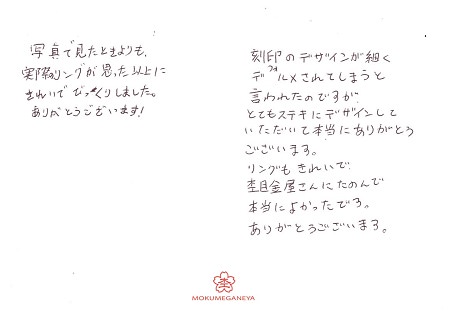 写真で見たときよりも、
実際のリングが思った以上に
きれいでびっくりしました。
ありがとうございます!
刻印のデザインが細く
デフォルメされてしまうと
言われたのですが、
とてもステキにデザインして
いただいて本当にありがとう
ございます。
リングもきれいで、
杢目金屋さんにたのんで
本当によかったです。
ありがとうございます。
MOKUMEGANEYA